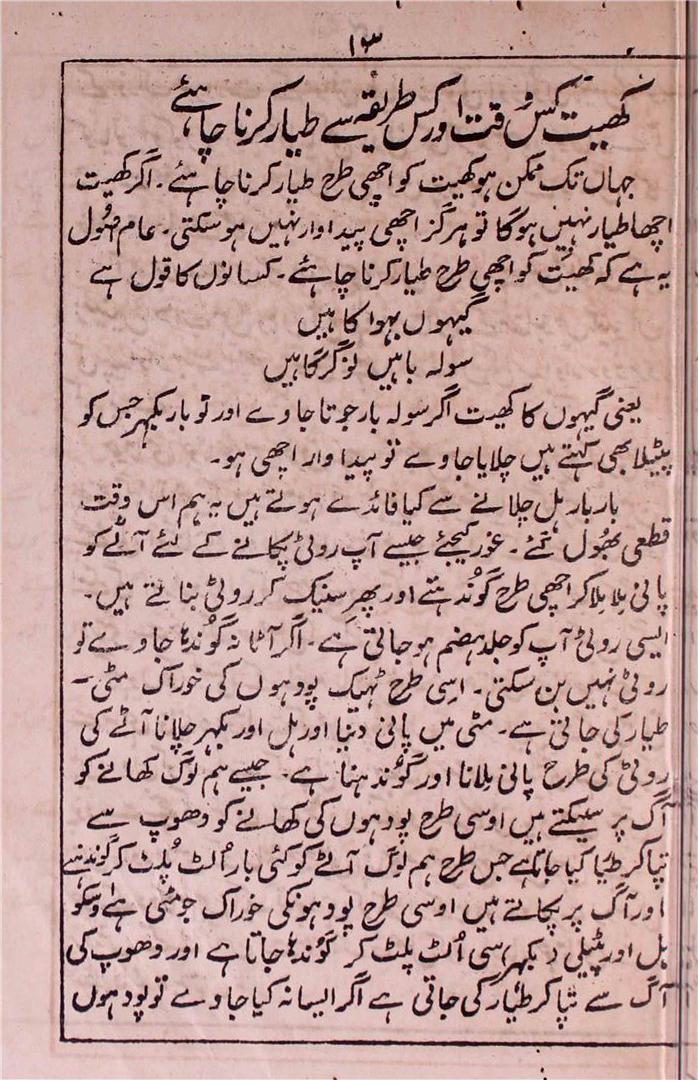 ۱۳
کھیت کس وقت اور کس طریقہ سے طیار کرنا چاہئے
جہاں تک ممکن ہو کھیت کو اچھی طرح طیار کرنا چاہئے۔ اگر کھیت
اچھا طیار نہیں ہوگا تو ہرگز اچھی پیداوار نہیں ہوسکتی۔ عام اصول
یہ ہے کہ کھیت کو اچھی طرح طیار کرنا چاہئے۔ کسانوں کا قول ہے
گیہوں بہوا کاہیں
سولہ باہیں نو گرگاہیں
یعنی گیہوں کا کھیت اگر سولہ بار جوتا جاوے اور نو بار بکہر جس کو
پٹیلا بھی کہتے ہیں چلایا جاوے تو پیداوار اچھی ہو۔
بار بار ہل چلانے سے کیا فائدے ہوتے ہیں یہ ہم اس وقت
قطعی بھول گئے۔ غور کیجئے جیسے آپ روٹی پکانے کے لئے آٹے کو
پانی ملا ملا کر اچھی طرح گوندہتے اور پھر سینک کر روٹی بناتے ہیں۔
ایسی روٹی آپ کو جلد ہضم ہوجاتی ہے۔ اگر آٹا نہ گوندھا جاوے تو
روٹی نہیں بن سکتی۔ اسی طرح ٹہیک پودہوں کی خوراک مٹی۔
طیار کی جاتی ہے۔ مٹی میں پانی دینا اور ہل اور بکہر چلانا آٹے کی
روٹی کی طرح پانی ملانا اور گوندہنا ہے۔ جیسے ہم لوگ کھانے کو
آگ پر سیکتے ہیں اوسی طرح پودہوں کی کھانے کو دھوپ سے
تپا کر طیار کیا جاتا ہے جس طرح ہم لوگ آٹے کو کئی بار اُلٹ پُلٹ کر گوندہتے
اور آگ پر پکاتے ہیں اوسی طرح پودہونکی خوراک جو مٹی ہے اوسکو
ہل اور پٹیلی دبکہر اسی اُلٹ پلٹ کر گوندھا جاتا ہے اور دھوپ کی
آگ سے تپا کر طیار کی جاتی ہے اگر ایسا نہ کیا جاوے تو پودہوں